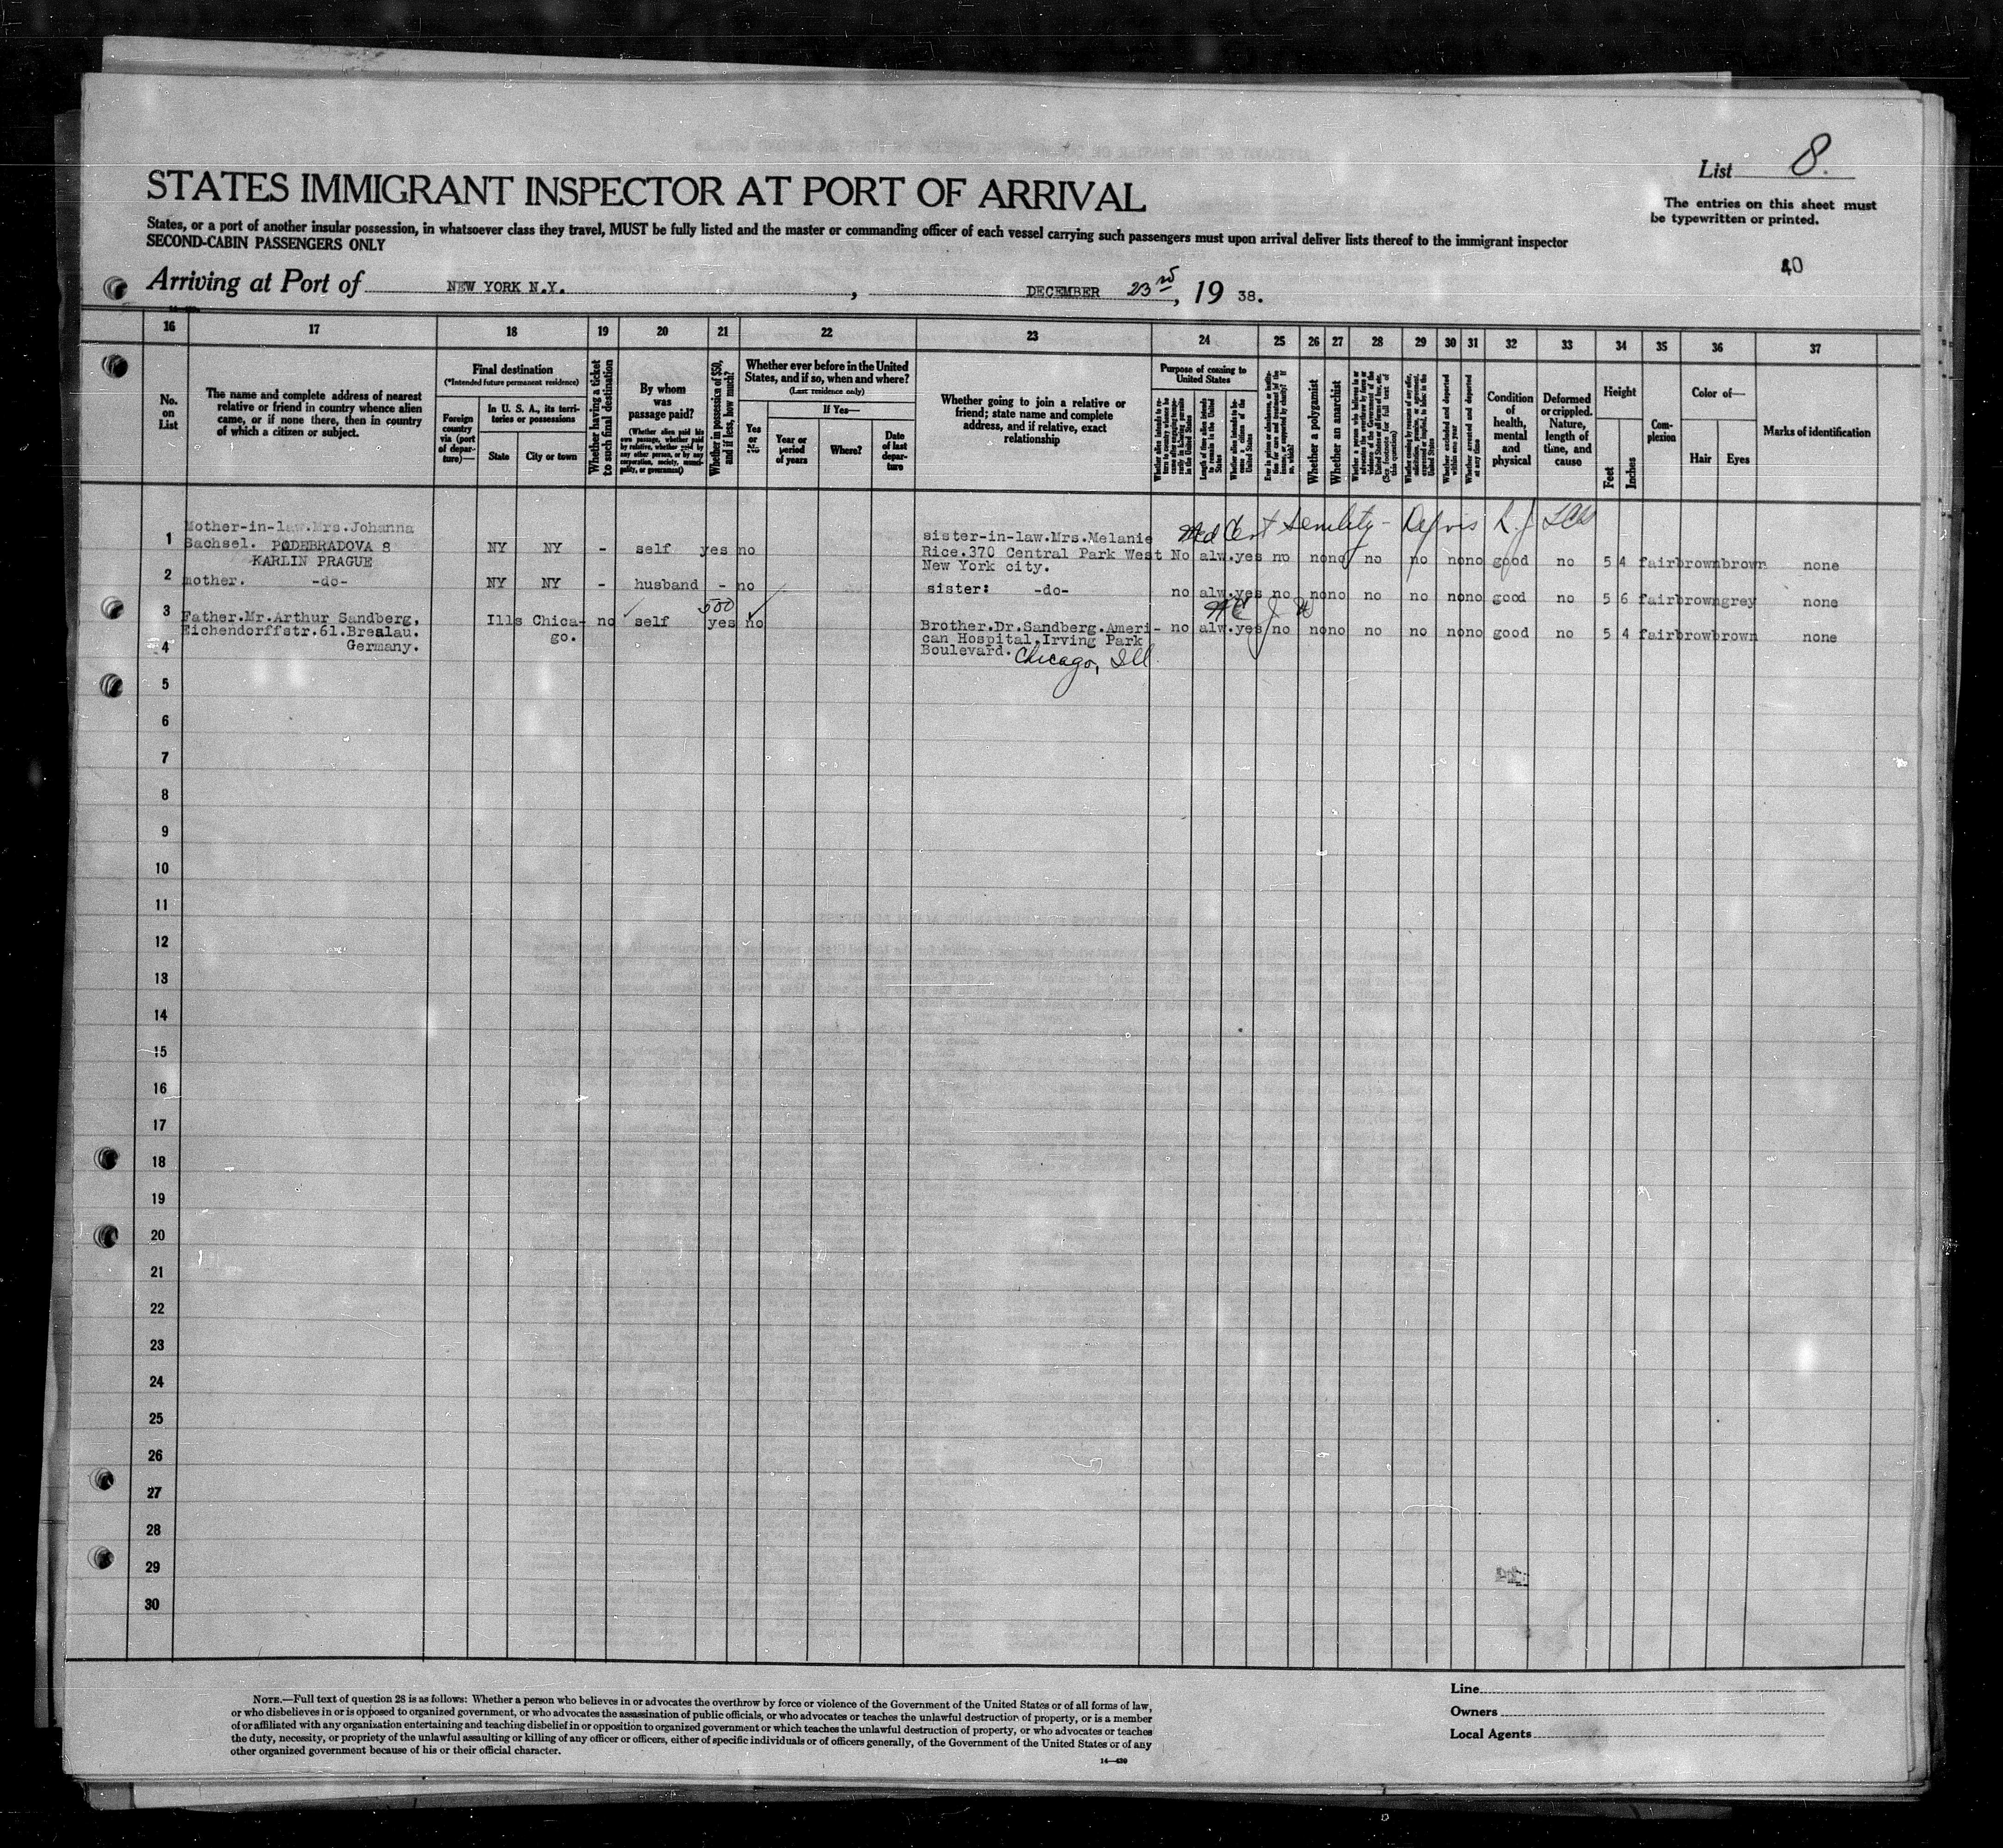 List 8.
STATES IMMIGRANT INSPECTOR AT PORT OF ARRIVAL
The entries on this sheet must
be typewritten or printed.
States, or a port of another insular possession, in whatsoever class they travel, MUST be fully listed and the master or commanding officer of each vessel carrying such passengers must upon arrival deliver lists thereof to the immigrant inspector
SECOND-CABIN PASSENGERS ONLY
40
Arriving at Port of NEW YORK N.Y. , DECEMBER 23rd, 19 38.
16 17 18 19 20 21 22 23 24 25 26 27 28 29 30 31 32 33 34 35 36 37
No. on List
The name and complete address of nearest
relative or friend in country whence alien
came, or if none there, then in country
of which a citizen or subject.
Final destination
(*Intended future permanent residence)
Foreign country via (port of departure)—
In U. S. A., its territories or possessions
State
City or town
Whether having a ticket to such final destination
By whom was passage paid?
(Whether alien paid his own passage, whether paid by relative, whether paid by any other person, or by any corporation, society, municipality, or government)
Whether in possession of $50, and if less, how much?
Whether ever before in the United States, and if so, when and where?
(Last residence only)
Yes or No
If Yes—
Year or period of years
Where?
Date of last departure
Whether going to join a relative or
friend; state name and complete
address, and if relative, exact
relationship
Purpose of coming to United States
Length of time alien intends to remain in the United States
Whether alien intends to become a citizen of the United States
Whether a polygamist
Whether an anarchist
Whether arrested and deported at any time
Condition of health, mental and physical
Deformed or crippled. Nature, length of time, and cause
Height
Feet
Inches
Complexion
Color of—
Hair
Eyes
Marks of identification
Med Cert Senility -
1 Mother-in-law.Mrs.Johanna
Sachsel. PODEBRADOVA 8
KARLIN PRAGUE
NY NY - self yes no
sister-in-law.Mrs.Melanie
Rice.370 Central Park West
New York city.
No alw.yes no no no no no no no good no 5 4 fair brown brown none
2 mother. -do- NY NY - husband - no sister: -do- no alw.yes no no no no no no no good no 5 6 fair brown grey none
500
3 Father.Mr.Arthur Sandberg,
Eichendorffstr.61.Breslau.
Germany.
Ills Chica-
go.
no self yes no
Brother.Dr.Sandberg.Ameri-
can Hospital,Irving Park
Boulevard. Chicago, Ill.
no alw.yes no no no no no no no good no 5 4 fair brown brown none
4
5
6
7
8
9
10
11
12
13
14
15
16
17
18
19
20
21
22
23
24
25
26
27
28
29
30
NOTE.—Full text of question 28 is as follows: Whether a person who believes in or advocates the overthrow by force or violence of the Government of the United States or of all forms of law,
or who disbelieves in or is opposed to organized government, or who advocates the assassination of public officials, or who advocates or teaches the unlawful destruction of property, or is a member
of or affiliated with any organization entertaining and teaching disbelief in or opposition to organized government or which teaches the unlawful destruction of property, or who advocates or teaches
the duty, necessity, or propriety of the unlawful assaulting or killing of any officer or officers, either of specific individuals or of officers generally, of the Government of the United States or of any
other organized government because of his or their official character.
14—430
Line
Owners
Local Agents